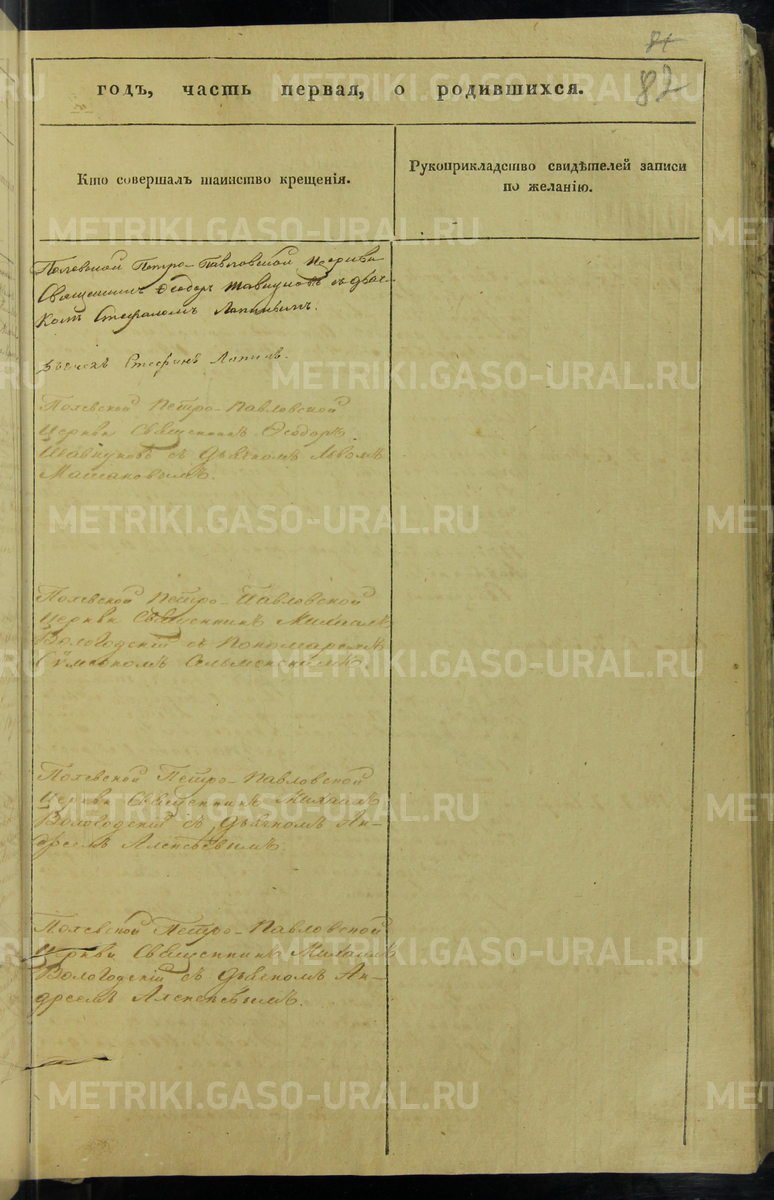 81
82
годъ, часть первая, о родившихся.
Кто совершалъ таинство крещенія.
Рукоприкладство свидѣтелей записи
по желанію.
Полевской Петро-Павловской Церкви
Священникъ Ѳеодоръ Шавкуновъ съ дьяч-
комъ Стефаномъ Лапинымъ.
Дьячекъ Стефанъ Лапинъ.
Полевской Петро-Павловской
Церкви Священникъ Ѳеодоръ
Шавкуновъ съ Дьячкомъ Львомъ
Полевской Петро-Павловской
Церкви Священникъ Михаилъ
Вологодскій съ Пономаремъ
Полевской Петро-Павловской
Церкви Священникъ Михаилъ
Вологодскій съ Дьячкомъ Ан-
дреемъ Алексѣевымъ.
Полевской Петро-Павловской
Церкви Священникъ Михаилъ
Вологодскій съ Дьячкомъ Ан-
дреемъ Алексѣевымъ.
METRIKI.GASO-URAL.RU